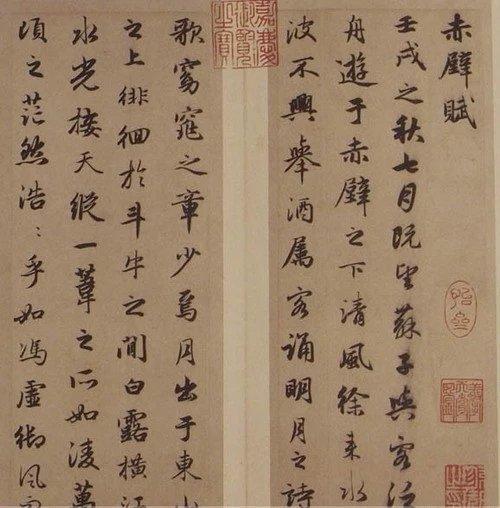 赤壁賦
壬戌之秋七月既望蘇子與客泛
舟遊于赤壁之下清風徐来水
波不興舉酒屬客誦明月之詩
嘉慶御覽之寶
歌窈窕之章少焉月出于東山
之上徘徊於斗牛之間白露橫江
水光接天縱一葦之所如凌萬
頃之茫然浩〻乎如馮虛御風而